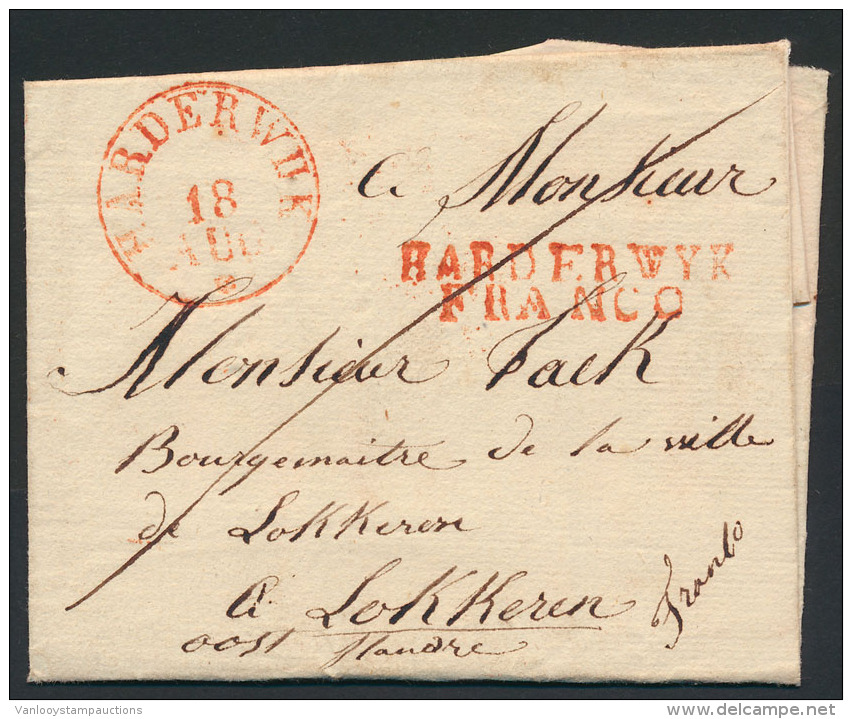 HARDERWIJK
18
AUG
a Monsieur
HARDERWYK
FRANCO
Monsieur Tack
Bourgemaitre de la ville
de Lokkeren
a Lokkeren
oost flandre
Franco
Vanlooystampauctions
delcampe.net